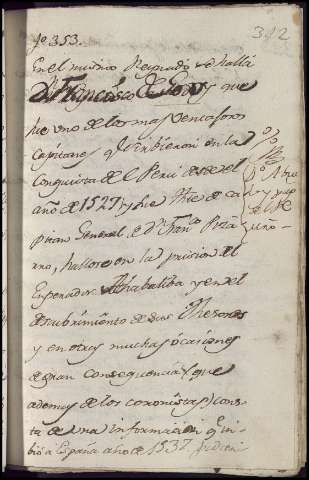 fo 353.
342
En el mismo Reynado se halla
Dn. Francisco de Godoy que
fue uno de los mas ventajosos
Capitanes q. sirbieron en la
Conquista de el Peru desde el
año de 1527 y fue Thte de ca
pitan General de Dn Franco Piza
rro, hallose en la prision del
Emperador Athabaliba y en el
descubrimiento de sus Thesoros
y en otras muchas ócasiones
de gran consequencia y que
ademas de los coronistas, cons
ta de una informacion q. im
bió a España año de 1537.